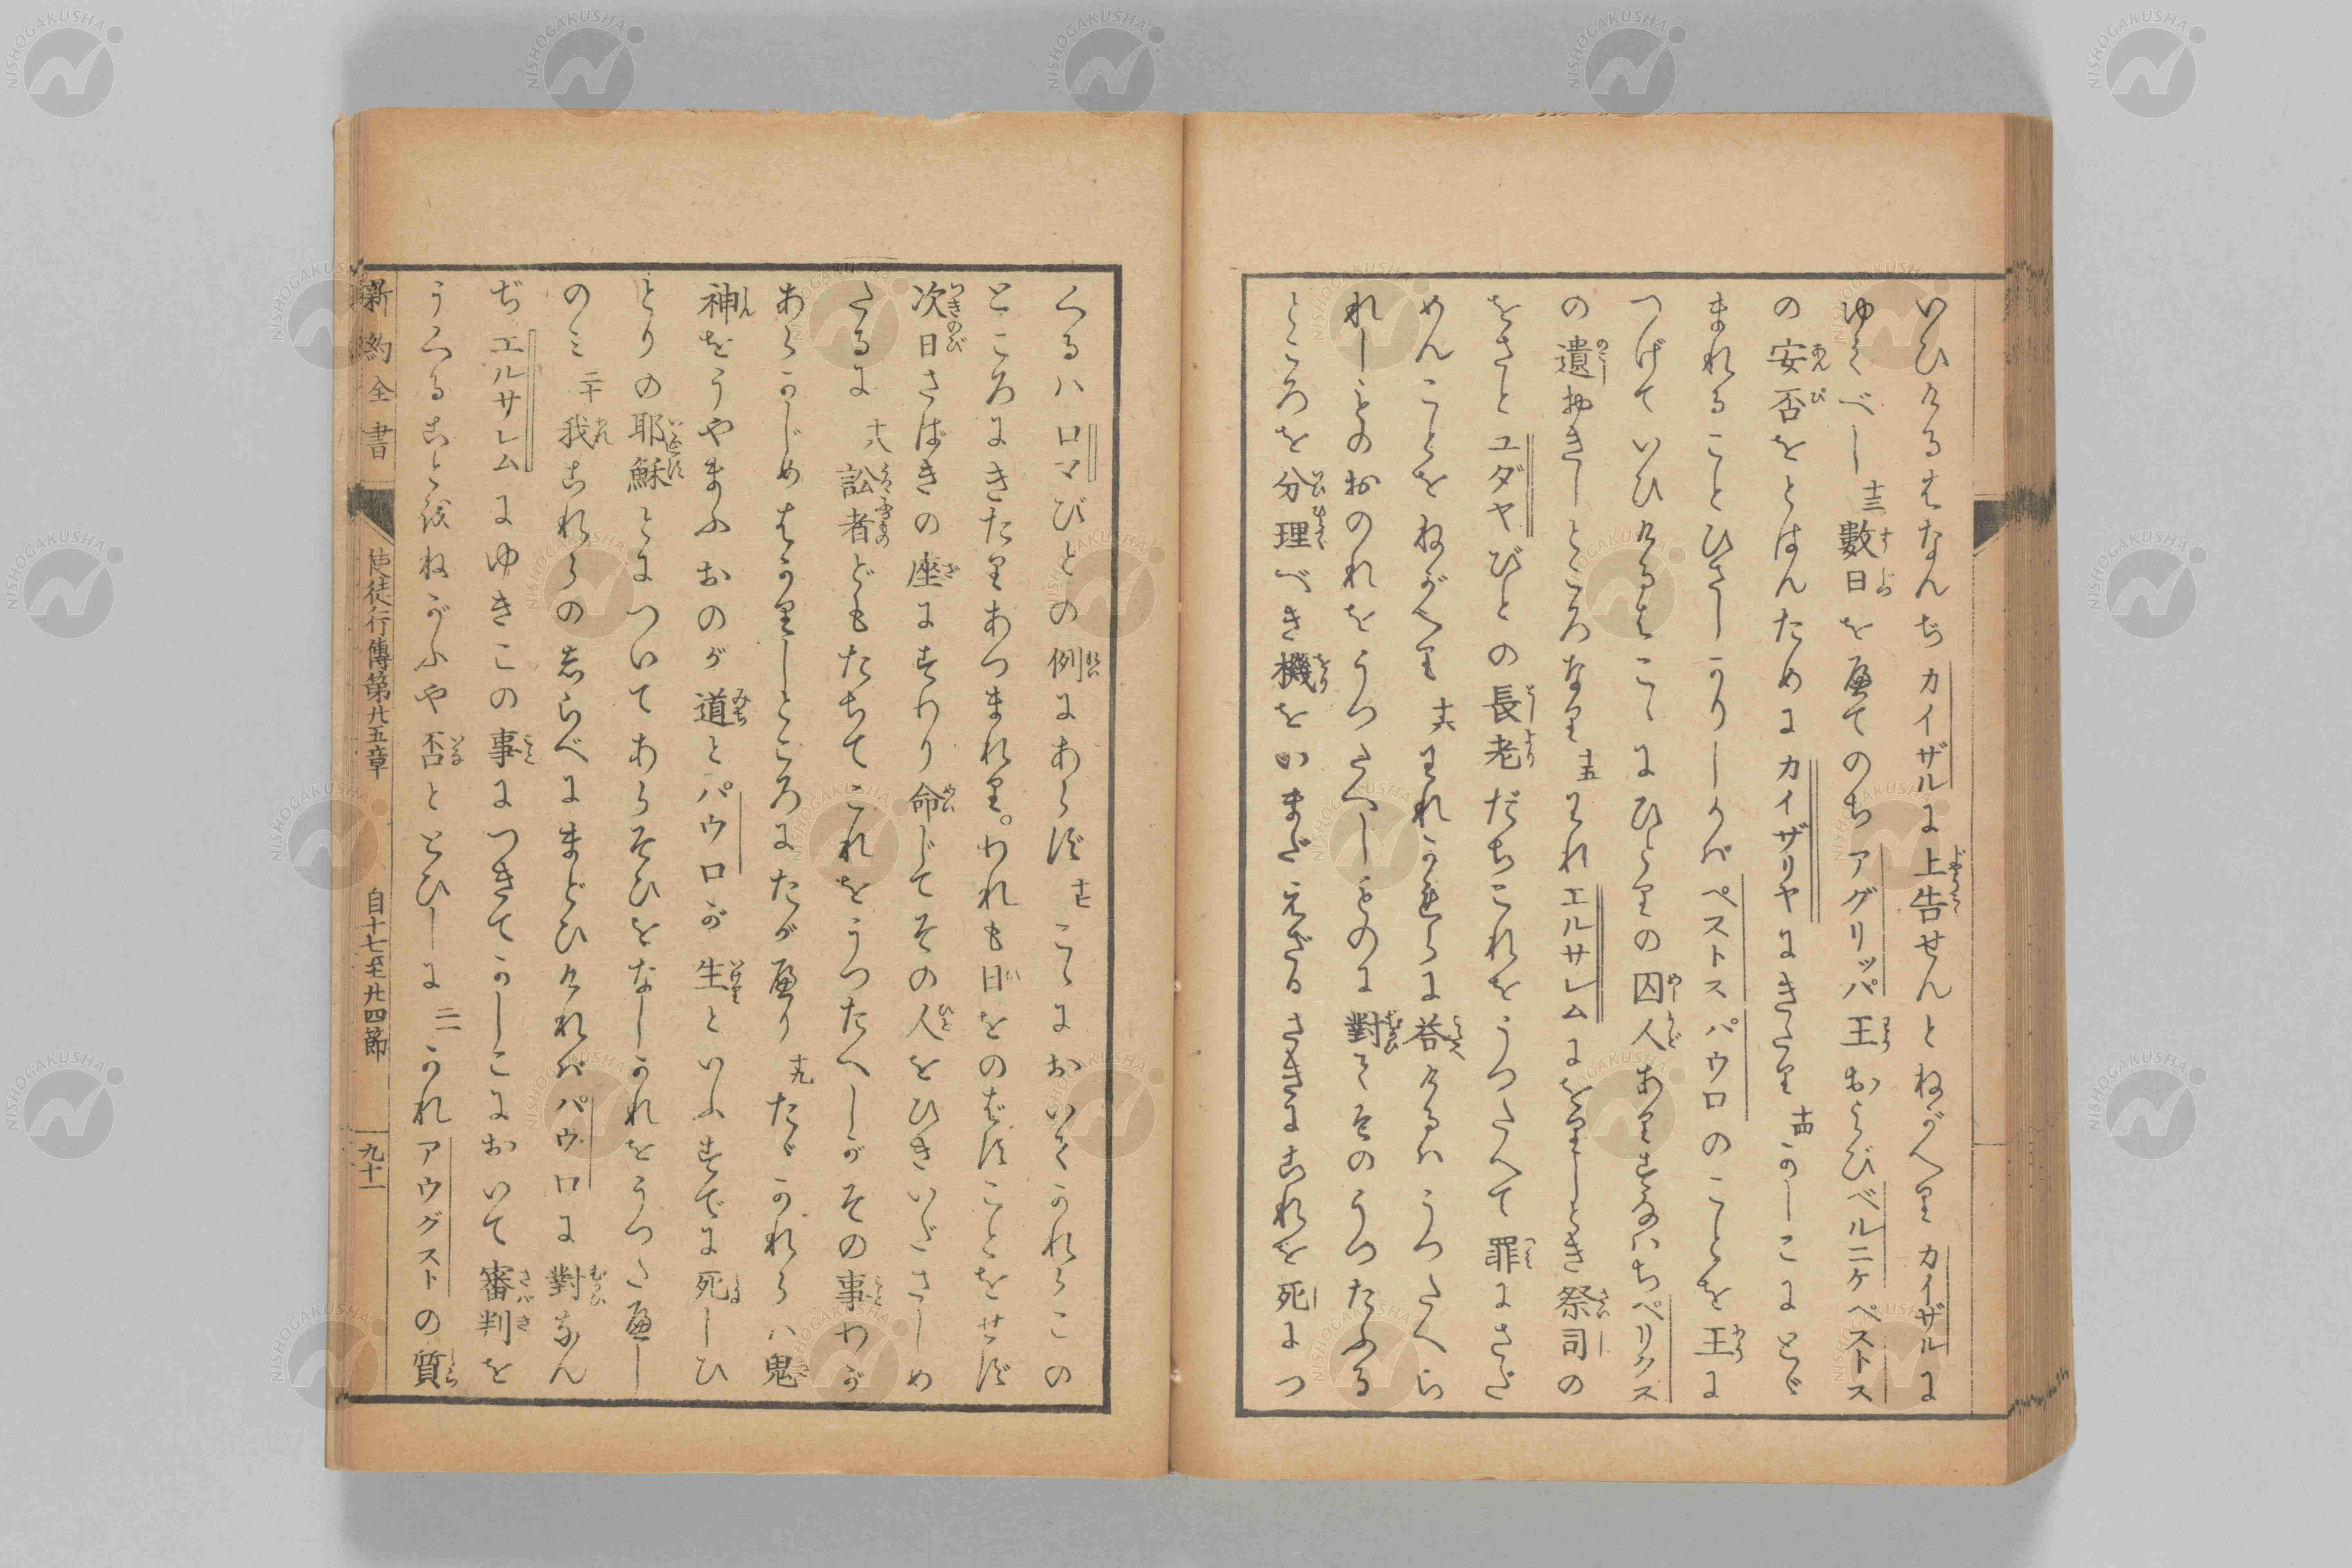 いひけるはなんぢカイザルに上告せんとねがへりカイザルに
ゆくべし 十三 數日を歴てのちアグリッパ王およびベルニケペストス
の安否をとはんためにカイザリヤにきたり 十四 かしこにとゞ
まれることひさしかりしかバペストスパウロのことを王に
つげていひけるはこゝにひとりの囚人ありすなハちペリクス
の遺おきしところなり 十五 われエルサレムにをりしとき祭司の
をさとユダヤびとの長老だちこれをうつたへて罪にさだ
めんことをねがへり 十六 われかれらに答けるハうつたへら
れしものおのれをうつたへしものに對てそのうつたふる
ところを分理べき機をいまだえざるさきにこれを死につ
くるハロマびとの例にあらず 十七 こゝにおいてかれらこの
ところにきたりあつまれり。われも日をのばすことをせず
次日さばきの座にすわり命じてその人をひきいださしめ
たるに 十八 訟者どもたちてこれをうつたへしがその事わが
あらかじめはかりしところにたがへり 十九 たゞかれらハ鬼
神をうやまふおのが道とパウロが生といふすでに死しひ
とりの耶穌とについてあらそひをなしかれをうつたへし
のミ 二十 我これらのしらべにまどひけれバパウロに對なん
ぢエルサレムにゆきこの事につきてかしこにおいて審判を
うくることをねがふや否ととひしに 二一 かれアウグストの質
新約全書 使徒行傳第廿五章 自十七至廿四節 九十一